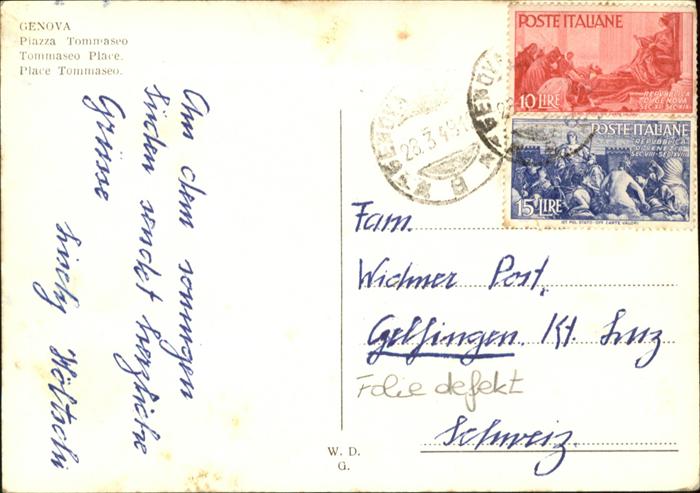 GENOVA
Piazza Tommaseo
Tommaseo Place.
Place Tommaseo.
Aus dem sonnigen
Süden sendet herzliche
Grüsse
POSTE ITALIANE
10 LIRE
REPVBBLICA
DI GENOVA
SEC. XII-SEC. XIX
POSTE ITALIANE
REPVBBLICA
DI VENEZIA
SEC. VIII-SEC. XVIII
15 LIRE
IST. POL. STATO-OFF. CARTE VALORI
GENOVA
28.3.49
Fam.
Widmer Post,
Gelfingen, Kt Luz
Folie defekt
Schweiz.
W. D.
G.